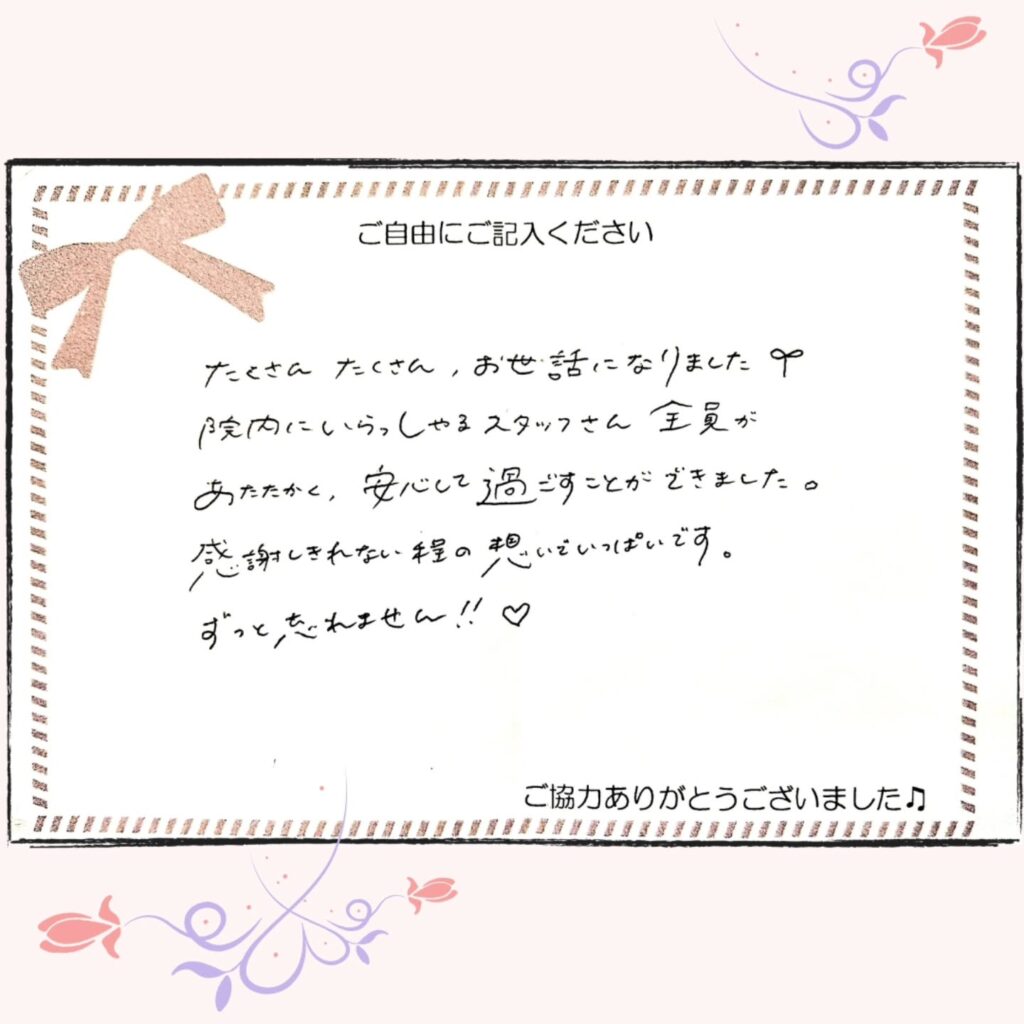 ご自由にご記入ください
たくさん たくさん, お世話になりました
院内にいらっしゃるスタッフさん 全員が
あたたかく, 安心して過ごすことができました。
感謝しきれない程の想いでいっぱいです。
ずっと忘れません!! ♡
ご協力ありがとうございました♫